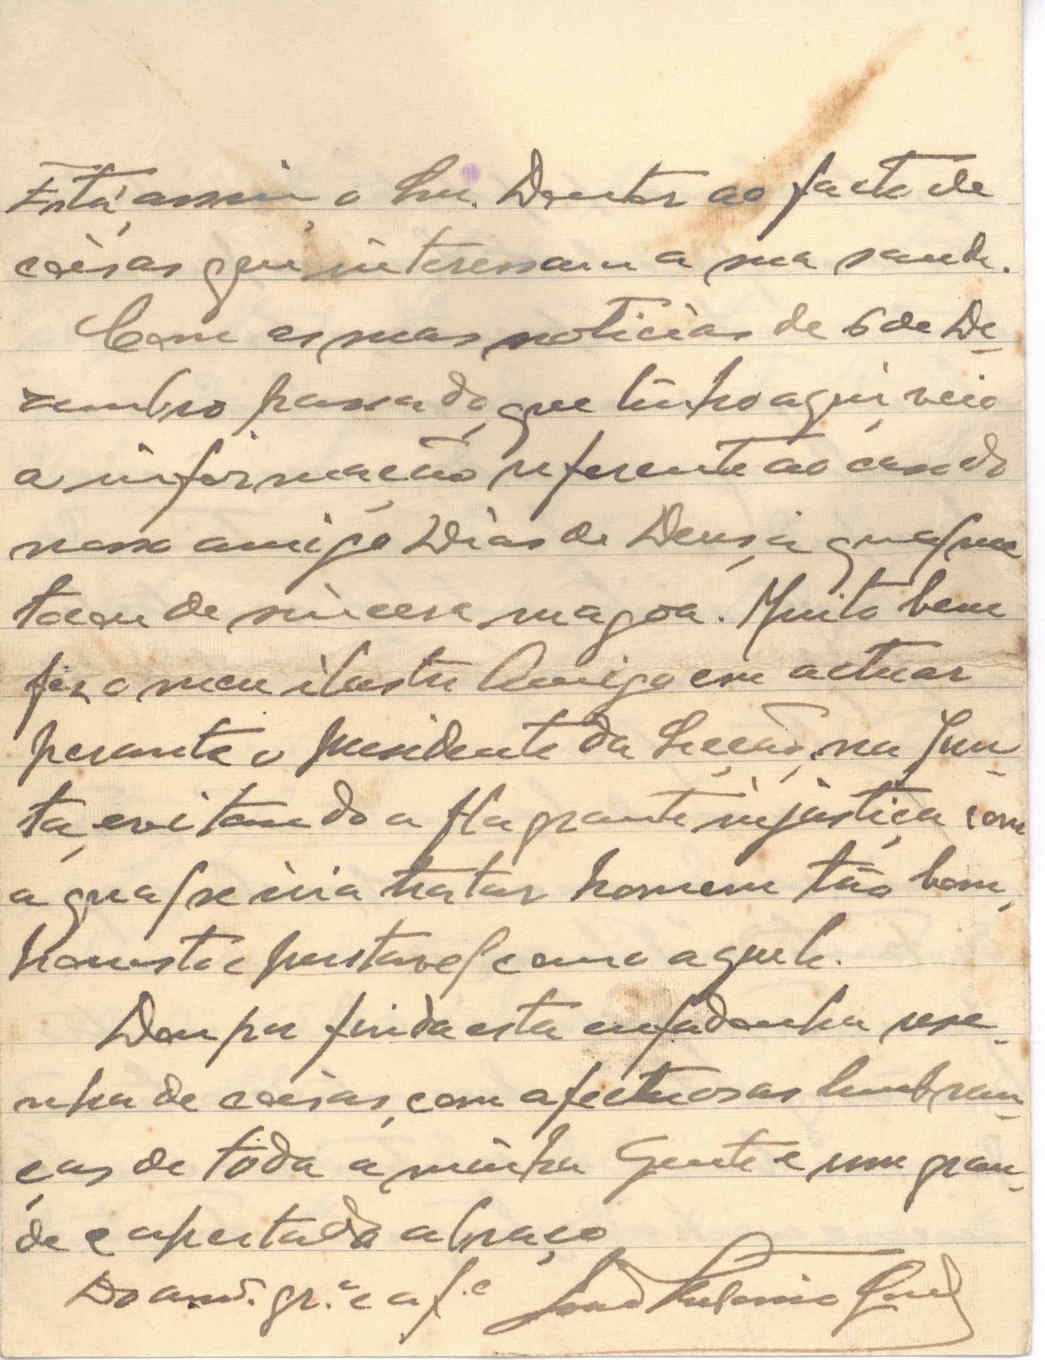 Está, assim, o Snr. Doutor ao facto de
coisas que interessam a sua saude.
Com as suas noticias de 6 de De-
zembro passado, que tenho aqui, veio
a informação referente ao caso do
nosso amigo Dias de Deus, a qual me
tocou de sincera magoa. Muito bem
fez o meu ilustre Amigo em actuar
perante o Presidente da Secção, na Jun-
ta, evitando a flagrante injustiça com
a qual se iria tratar homem tão bom,
honesto e prestavel como aquele.
Dou por finda esta enfadonha rese-
nha de coisas, com afectuosas lembran-
ças de toda a minha Gente e um gran-
de e apertado abraço
Do am.º gr.e e af.e João Antonio